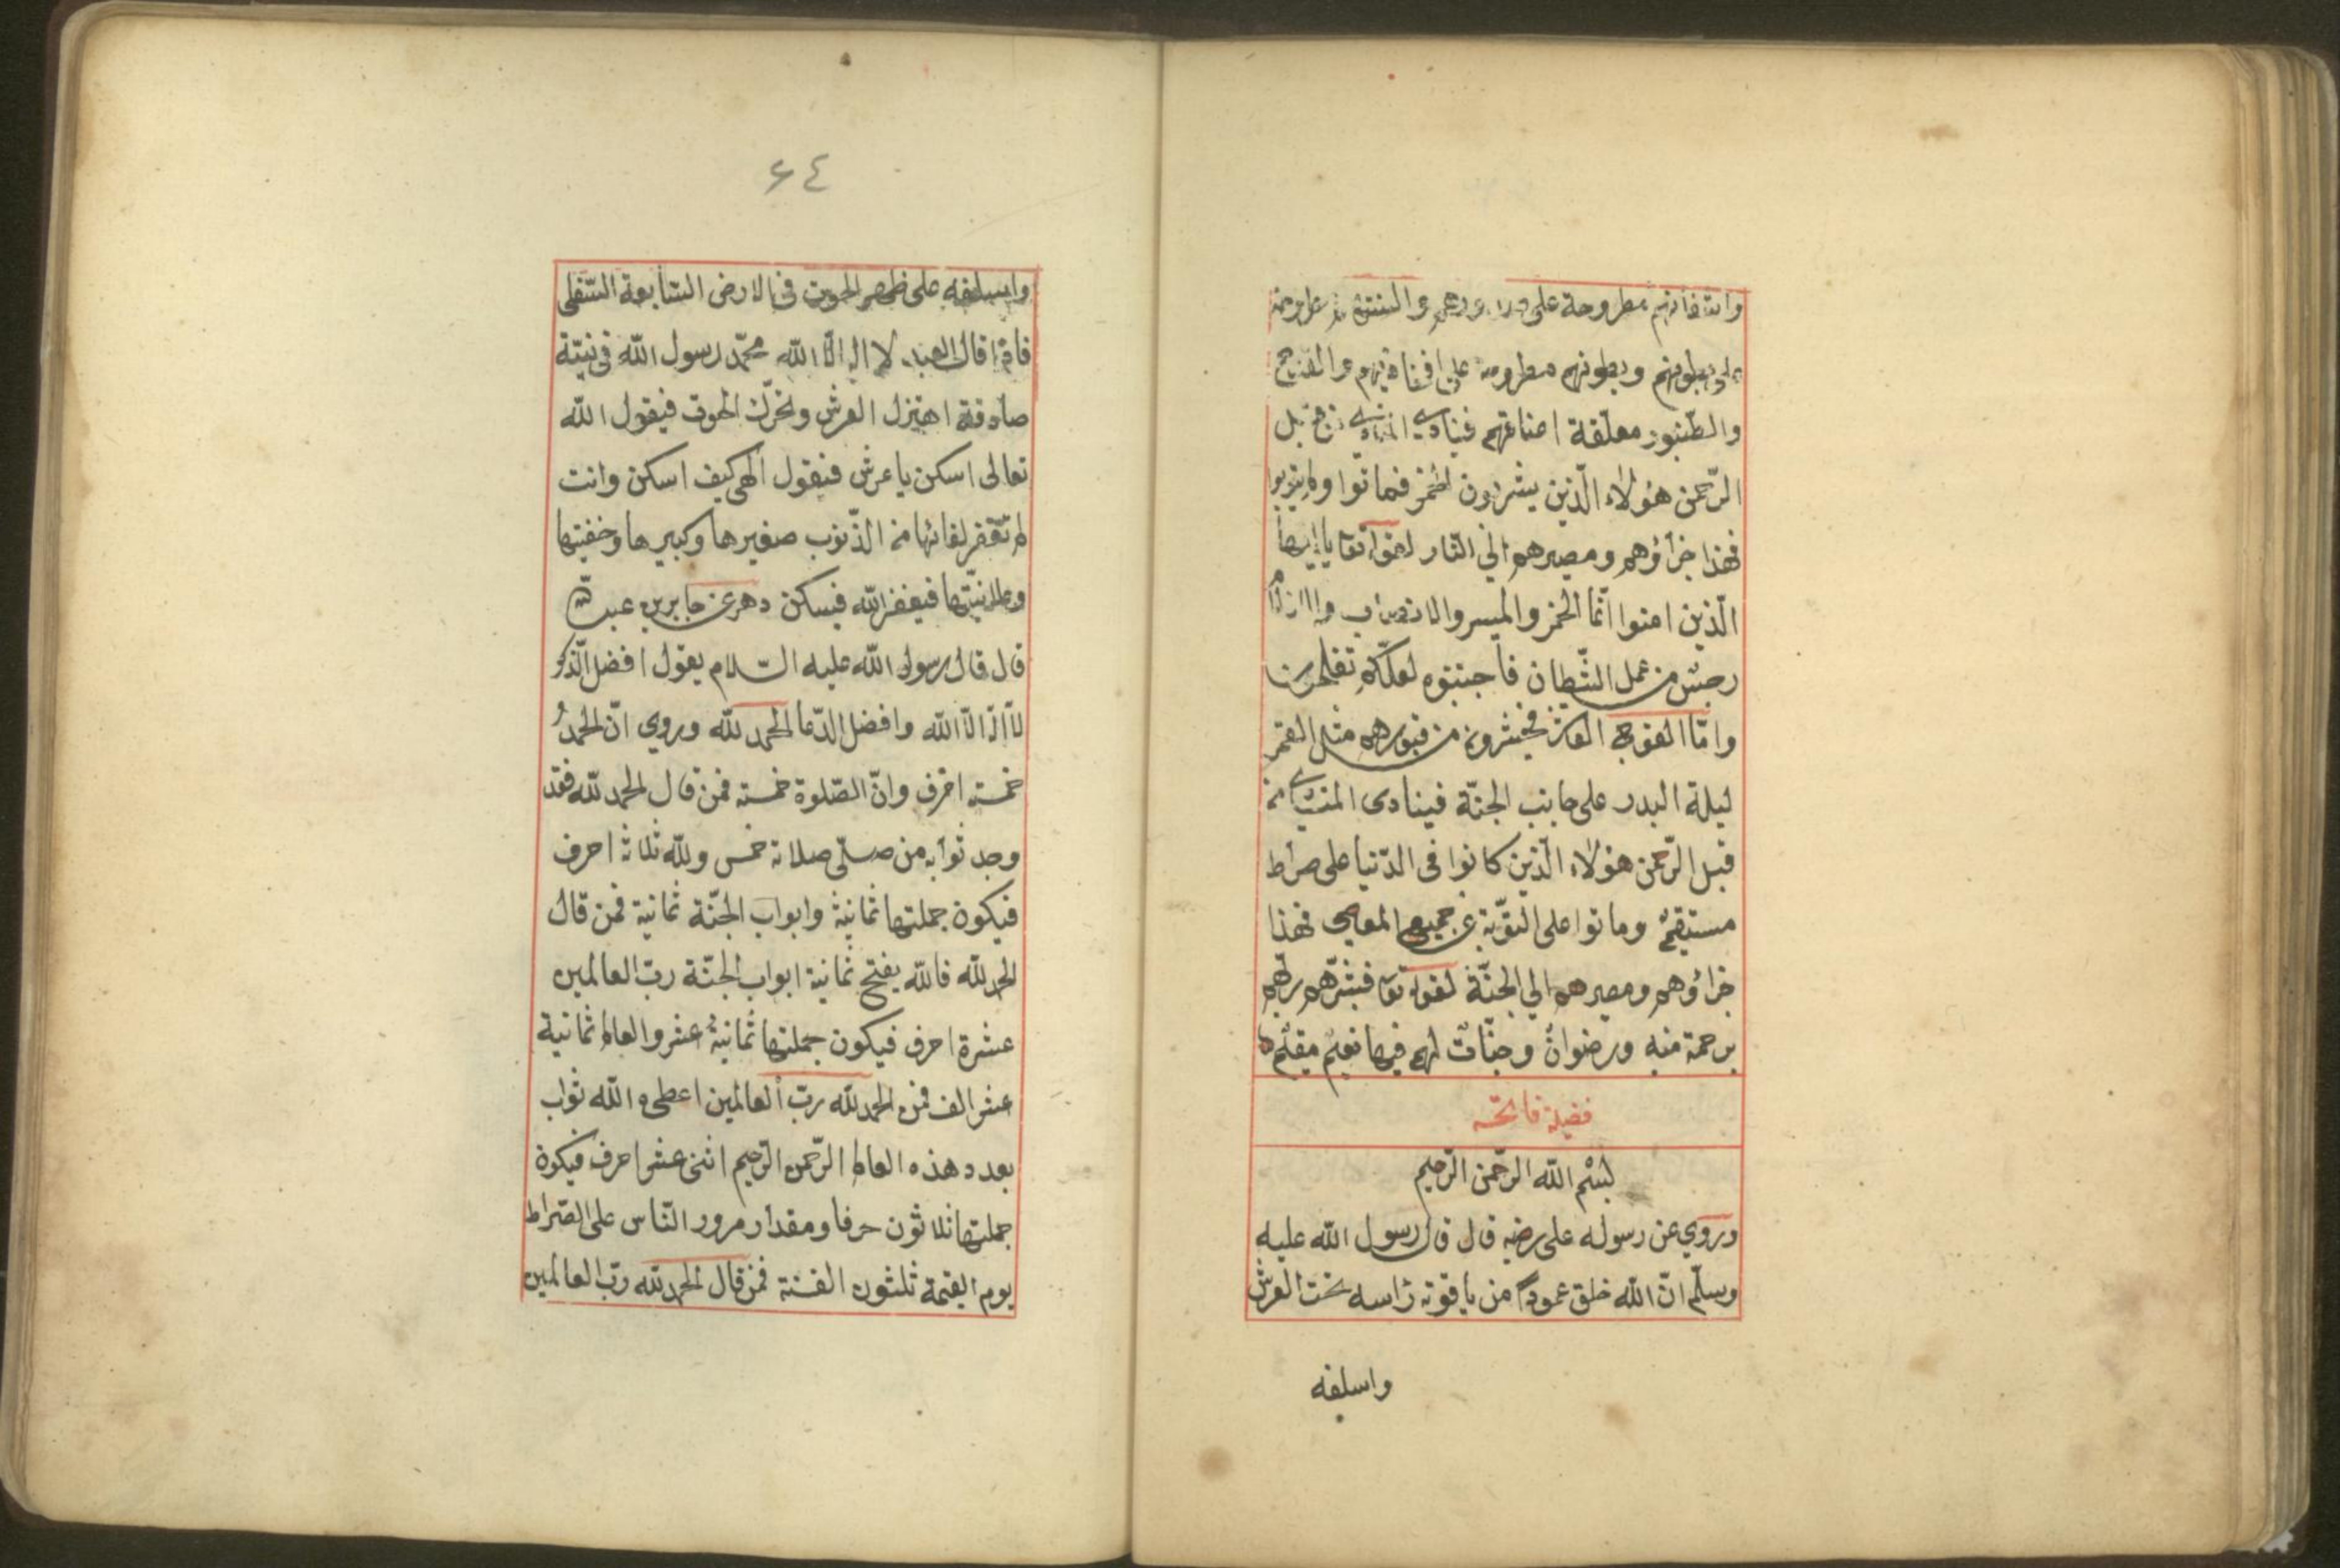 مطروحة على والسنتهم
على بطونهم وبطونهم مطروحة على اقفائهم والقدح
والطنبور معلقة اعناقهم فينادى المنادى من قبل
الرّحمن هؤلاء الّذين يشربون الخمر فماتوا ولم يتوبوا
فهذا جزاؤهم ومصيرهم الي النّار لقوله تعا يا ايها
الّذين امنوا انّما الخمر والميسر والانصاب والازلام
رجس من عمل الشّيطان فاجتنبوه لعلّكم تفلحون
وامّا الفوج العاشر فيحشرون من قبورهم مثل القمر
ليلة البدر على جانب الجنّة فينادى المنادى من
قبل الرّحمن هؤلاء الّذين كانوا فى الدّنيا على صراط
مستقيم وماتوا على التّوبة عن جميع المعاصى فهذا
جزاؤهم ومصيرهم الي الجنّة لقوله تعا فبشّرهم ربّهم
برحمة منه ورضوان وجنّات لهم فيها نعيم مقيم
فضيلة فاتحه
بسم الله الرّحمن الرّحيم
وروي عن رسوله على رضيه قال قال رسول الله عليه
وسلّم انّ الله خلق عمودا من ياقوته راسه تحت العرش
واسلفه
٦٤
واسلفه على ظهر الحوت فى الارض السّابعة السّفلى
فاذا قال العبد لا اله الّا الله محمّد رسول الله فى نيّة
صادقة اهتزل العرش وتحرّك الحوت فيقول الله
تعالى اسكن يا عرش فيقول الهى كيف اسكن وانت
لم تغفر لقائها من الذّنوب صغيرها وكبيرها وخفيّتها
وعلانيّتها فيغفر الله فيسكن وهر عن جابر بن عبد الله
قال قال رسول الله عليه السّلام يقول افضل الذّكر
لا اله الّا الله وافضل الدّعا الحمد لله وروي انّ الحمد
خمسته احرف وانّ الصّلوة خمسته فمن قال الحمد لله فقد
وجد ثوابه من صلّى صلاته خمس ولله ثلاثة احرف
فيكون جملتها ثمانية وابواب الجنّة ثمانية فمن قال
الحمد لله فالله يفتح ثمانية ابواب الجنّة ربّ العالمين
عشرة احرف فيكون جملتها ثمانية عشر والعالم ثمانية
عشر الف فمن الحمد لله ربّ العالمين اعطى ه الله ثواب
بعدد هذه العالم الرّحمن الرّحيم اثنى عشر احرف فيكون
جملتها ثلاثون حرفا ومقدار مرور النّاس على الصّراط
يوم القيمة ثلثون الف سنة فمن قال الحمد لله ربّ العالمين